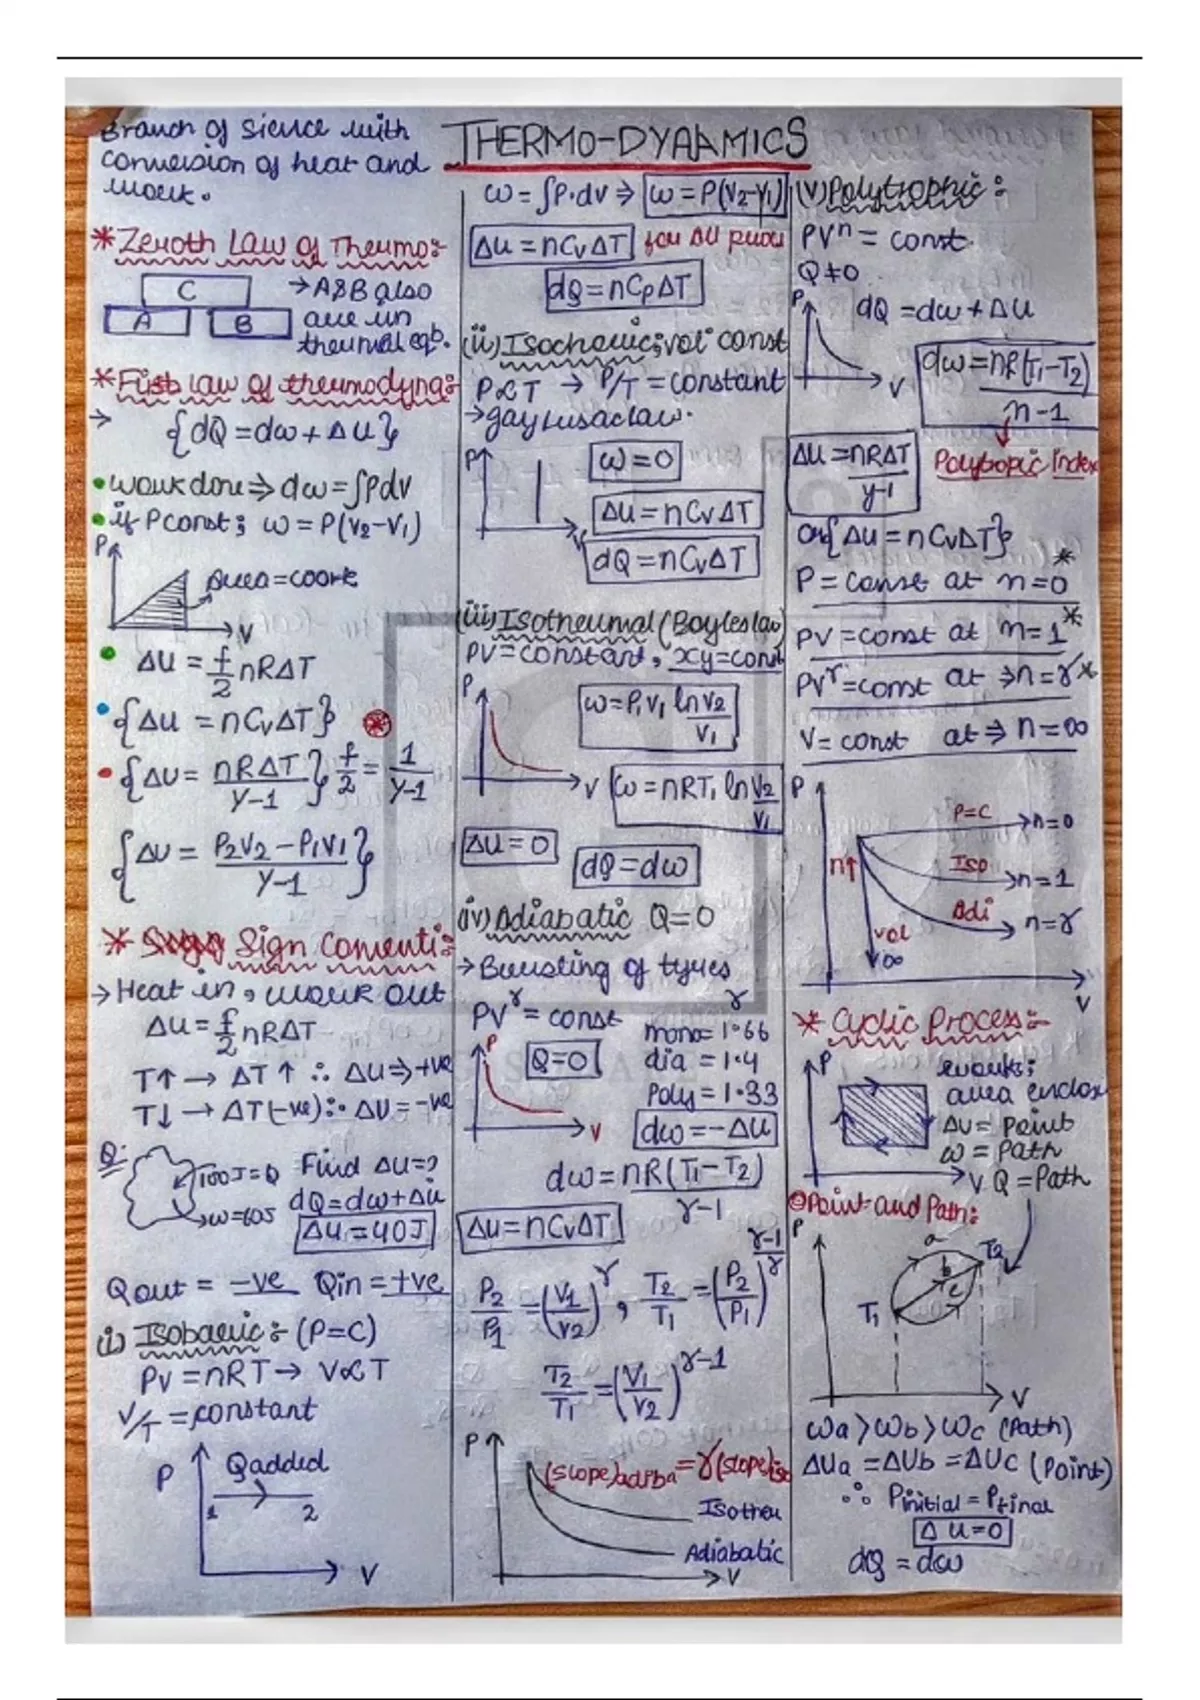 Branch of Sience with
conversion of heat and
work.
*Zeroth Law of Thermo:
C
A
B
→A&B also
are in
thermal eqb.
*First law of thermodyna:
→ {dQ = dw + ΔU}
• work done ⇒ dw = ∫Pdv
• if P const; w = P(V2-V1)
P
V
• ΔU = f/2 nRΔT
• {ΔU = nCvΔT}
• {ΔU = nRΔT/γ-1} f/2 = 1/γ-1
{ΔU = P2V2-P1V1/γ-1}
* Sign Conventi:
→Heat in, work out
ΔU = f/2 nRΔT
T↑ → ΔT↑ ∴ ΔU ⇒ +ve
T↓ → ΔT(-ve) ∴ ΔU = -ve
Q:
100J=Q
w=60J
Find ΔU=?
dQ=dw+Δu
ΔU=40J
Qout = -ve Qin = +ve
(i) Isobaric: (P=C)
PV = nRT → V∝T
V/T = constant
P
Q added
1 2
V
THERMO-DYAAMICS
w = ∫P.dv ⇒ w = P(V2-V1)
ΔU = nCvΔT
dQ = nCpΔT
(ii) Isochoric; vol const
P∝T → P/T = constant
→gay Lusac law.
P
V
w=0
ΔU = nCvΔT
dQ = nCvΔT
(iii) Isothermal (Boyles law)
PV = constant, xy=const
P
V
w=P1V1 ln V2/V1
w = nRT1 ln V2/V1
ΔU = 0
dQ = dw
(iv) Adiabatic Q=0
→Bursting of tyres
PV^γ = const
γ
mono = 1.66
dia = 1.4
Poly = 1.33
P
V
Q=0
dw = -ΔU
dw = nR(T1-T2)/γ-1
ΔU = nCvΔT
P2/P1 = (V1/V2)^γ, T2/T1 = (P2/P1)^γ-1/γ
T2/T1 = (V1/V2)^γ-1
P
(slope)adiba = γ(slope)iso
Isother
Adiabatic
V
(V) Polytrophic:
PV^n = const.
Q≠0
P
V
dQ = dw + ΔU
dw = nR(T1-T2)/n-1
Polytropic Index
ΔU = nRΔT/γ-1
or {ΔU = nCvΔT}
P = const at n=0*
PV = const at n=1*
PV^γ = const at ⇒ n=γ*
V = const at ⇒ n=∞
P
P=C n=0
n↑
Iso n=1
Adi n=γ
vol
∞
V
* Cyclic Process:-
P
V
work:
area enclos
ΔU = Point
w = Path
Q = Path
Point and Path:
P
a
b
c
T1
T2
V
wa > wb > wc (Path)
ΔUa = ΔUb = ΔUc (Point)
∴ Pinitial = Pfinal
ΔU=0
dQ = dw